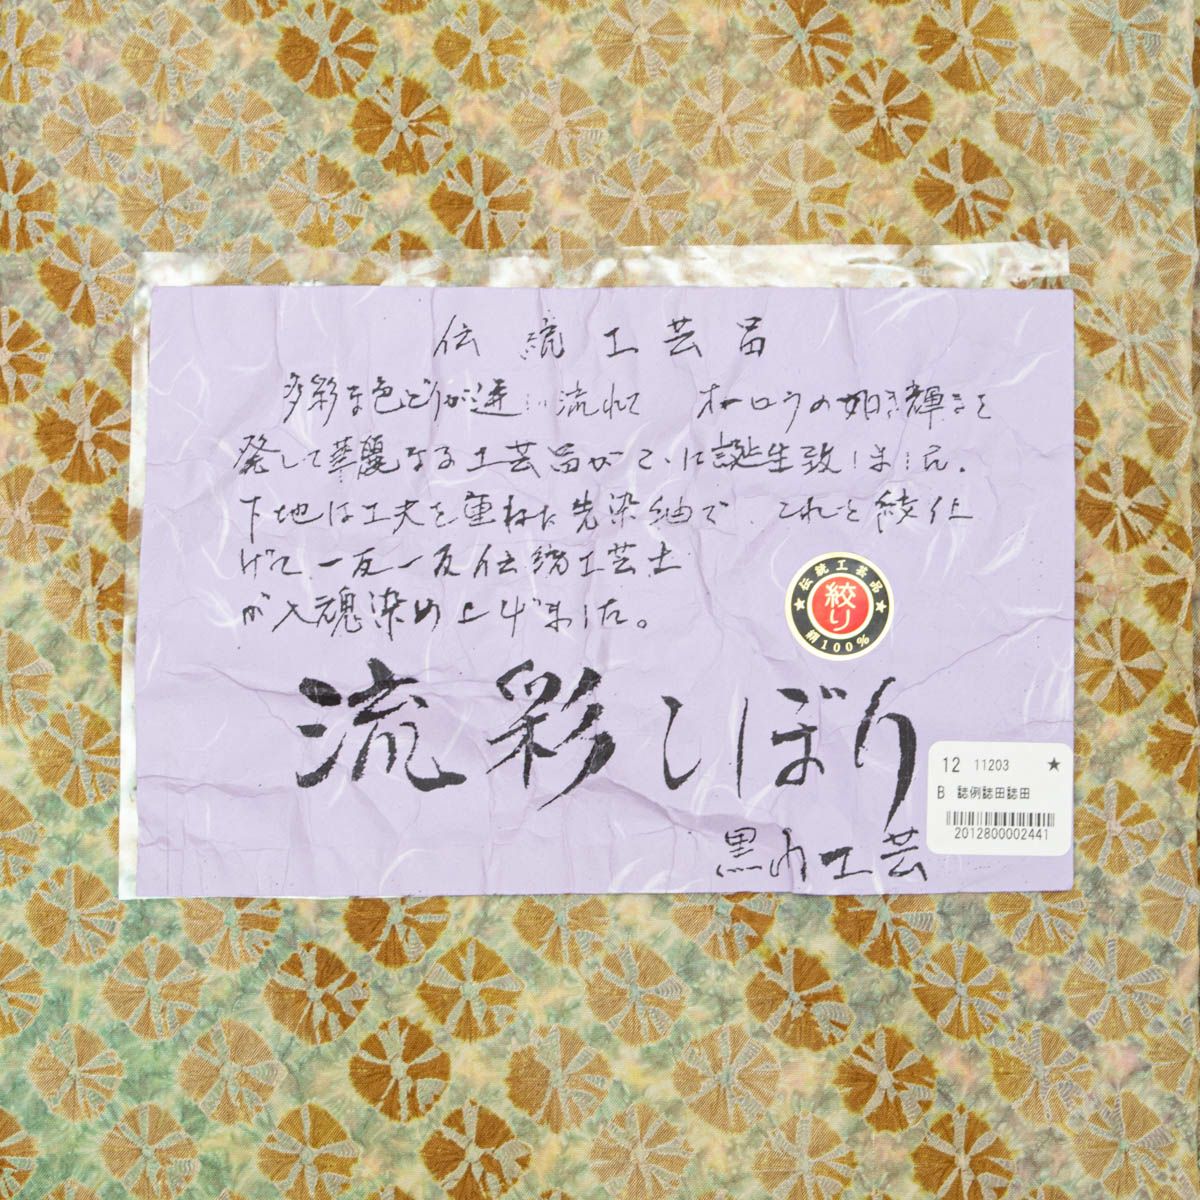 伝統工芸品
多彩な色どりが迸い流れて オーロラの如き輝きを
発して華麗なる工芸品がここに誕生致しました。
下地は工夫を重ねた先染紬で、これを絞仕
げて、一反一反伝統工芸士
が入魂染め上げました。
伝統工芸品
絞り
絹100%
流彩しぼり
12 11203 ★
B 誌例誌田誌田
2012800002441
工芸